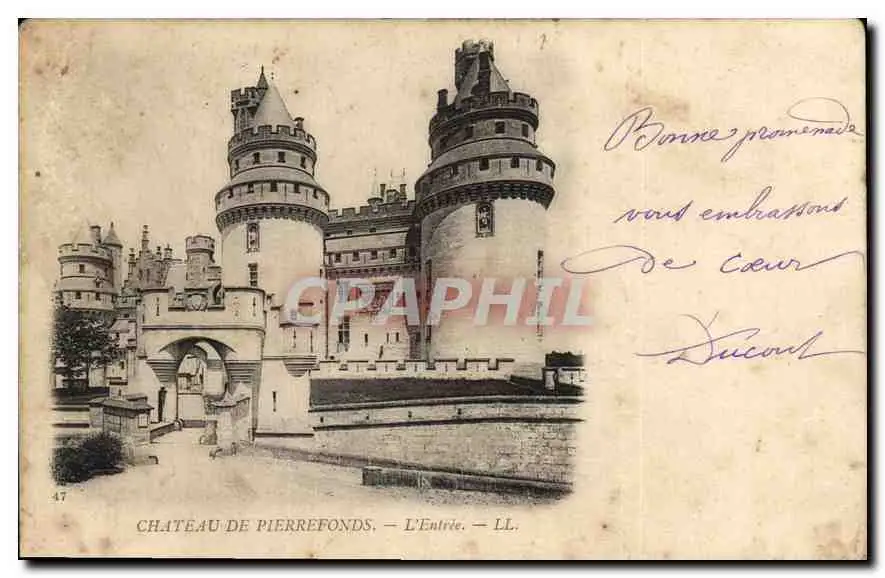 Bonne promenade
vous embrassons
de cœur
Ducourt
CPAPHIL
47
CHATEAU DE PIERREFONDS. — L'Entrée. — LL.